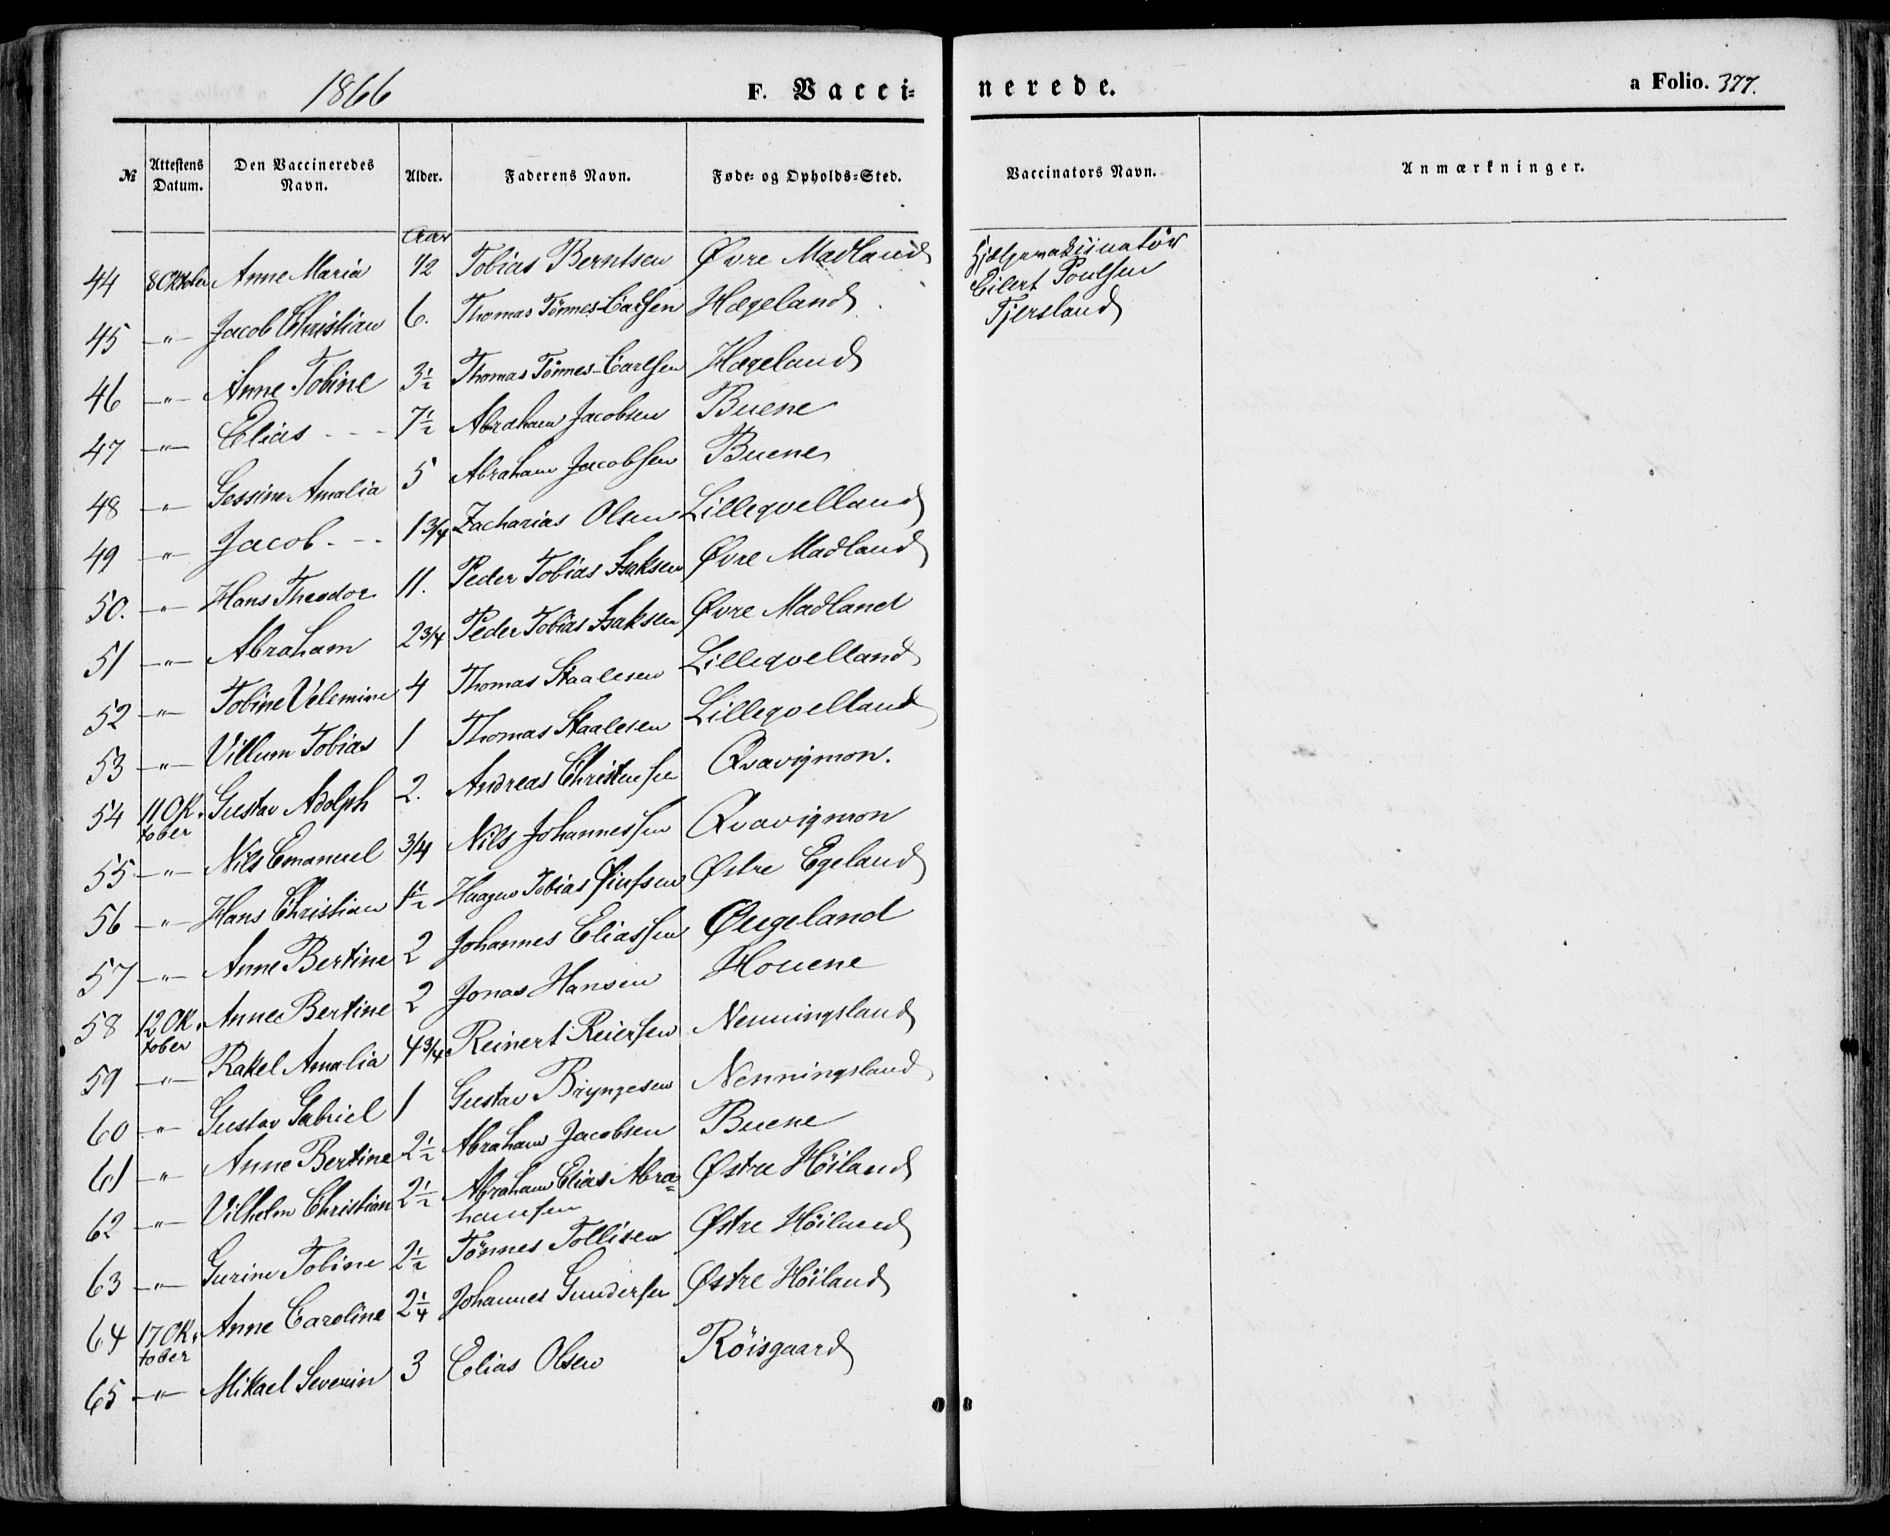 1866 F. Vacci- nerede. a Folio. 377.
№ Attestens Datum. Den Vaccineredes Navn. Alder. Faderens Navn. Føde- og Opholds-Sted. Vaccinators Navn. Anmærkninger.
Aar
44 8 Oktober Anne Maria 1/2 Tobias Berntsen Øvre Madland Hjælpevakcinatör
Eilert Poulsen
Fjersland
45 -"- Jacob Christian 6. Thomas Tönnes-Carlsen Hægeland
46 -"- Anne Tobine 3½ Thomas Tönnes-Carlsen Hægeland
47 -"- Elias - - - 7½ Abraham Jacobsen Buene
48 -"- Gessine Amalia 5 Abraham Jacobsen Buene
49 -"- Jacob - - - 1 3/4 Zacharias Olsen Lilleqvelland
50. -"- Hans Theodor 11. Peder Tobias Isaksen Øvre Madland
51 -"- Abraham 2 3/4 Peder Tobias Isaksen Øvre Madland
52 -"- Tobine Velemine 4 Thomas Staalesen Lilleqvelland
53 -"- Villum Tobias 1 Thomas Staalesen Lilleqvelland
54 11 Ok-
tober Gustav Adolph 2. Andreas Christensen Qvavigmon.
55 -"- Nils Emanuel 3/4 Nils Johannessen Qvavigmon
56 -"- Hans Christian 1½ Haagen Tobias Øiufsen Østre Egeland
57 -"- Anne Bertine 2 Johannes Eliassen Øugeland
58 12 Ok-
tober Anne Bertine 2 Jonas Hansen Houene
59 -"- Rakel Amalia 4 3/4 Reinert Reiersen Nenningsland
60 -"- Gustav Gabriel 1 Gustav Bryngesen Nenningsland
61 -"- Anne Bertine 2½ Abraham Jacobsen Buene
62 -"- Vilhelm Christian 2½ Abraham Elias Abra-
hamsen Østre Höiland
63 -"- Gurine Tobine 2½ Tönnes Tollisen Østre Höiland
64 17 Ok-
tober Anne Caroline 2¼ Johannes Gundersen Østre Höiland
65 -"- Mikael Severin 3 Elias Olsen Röisgaard